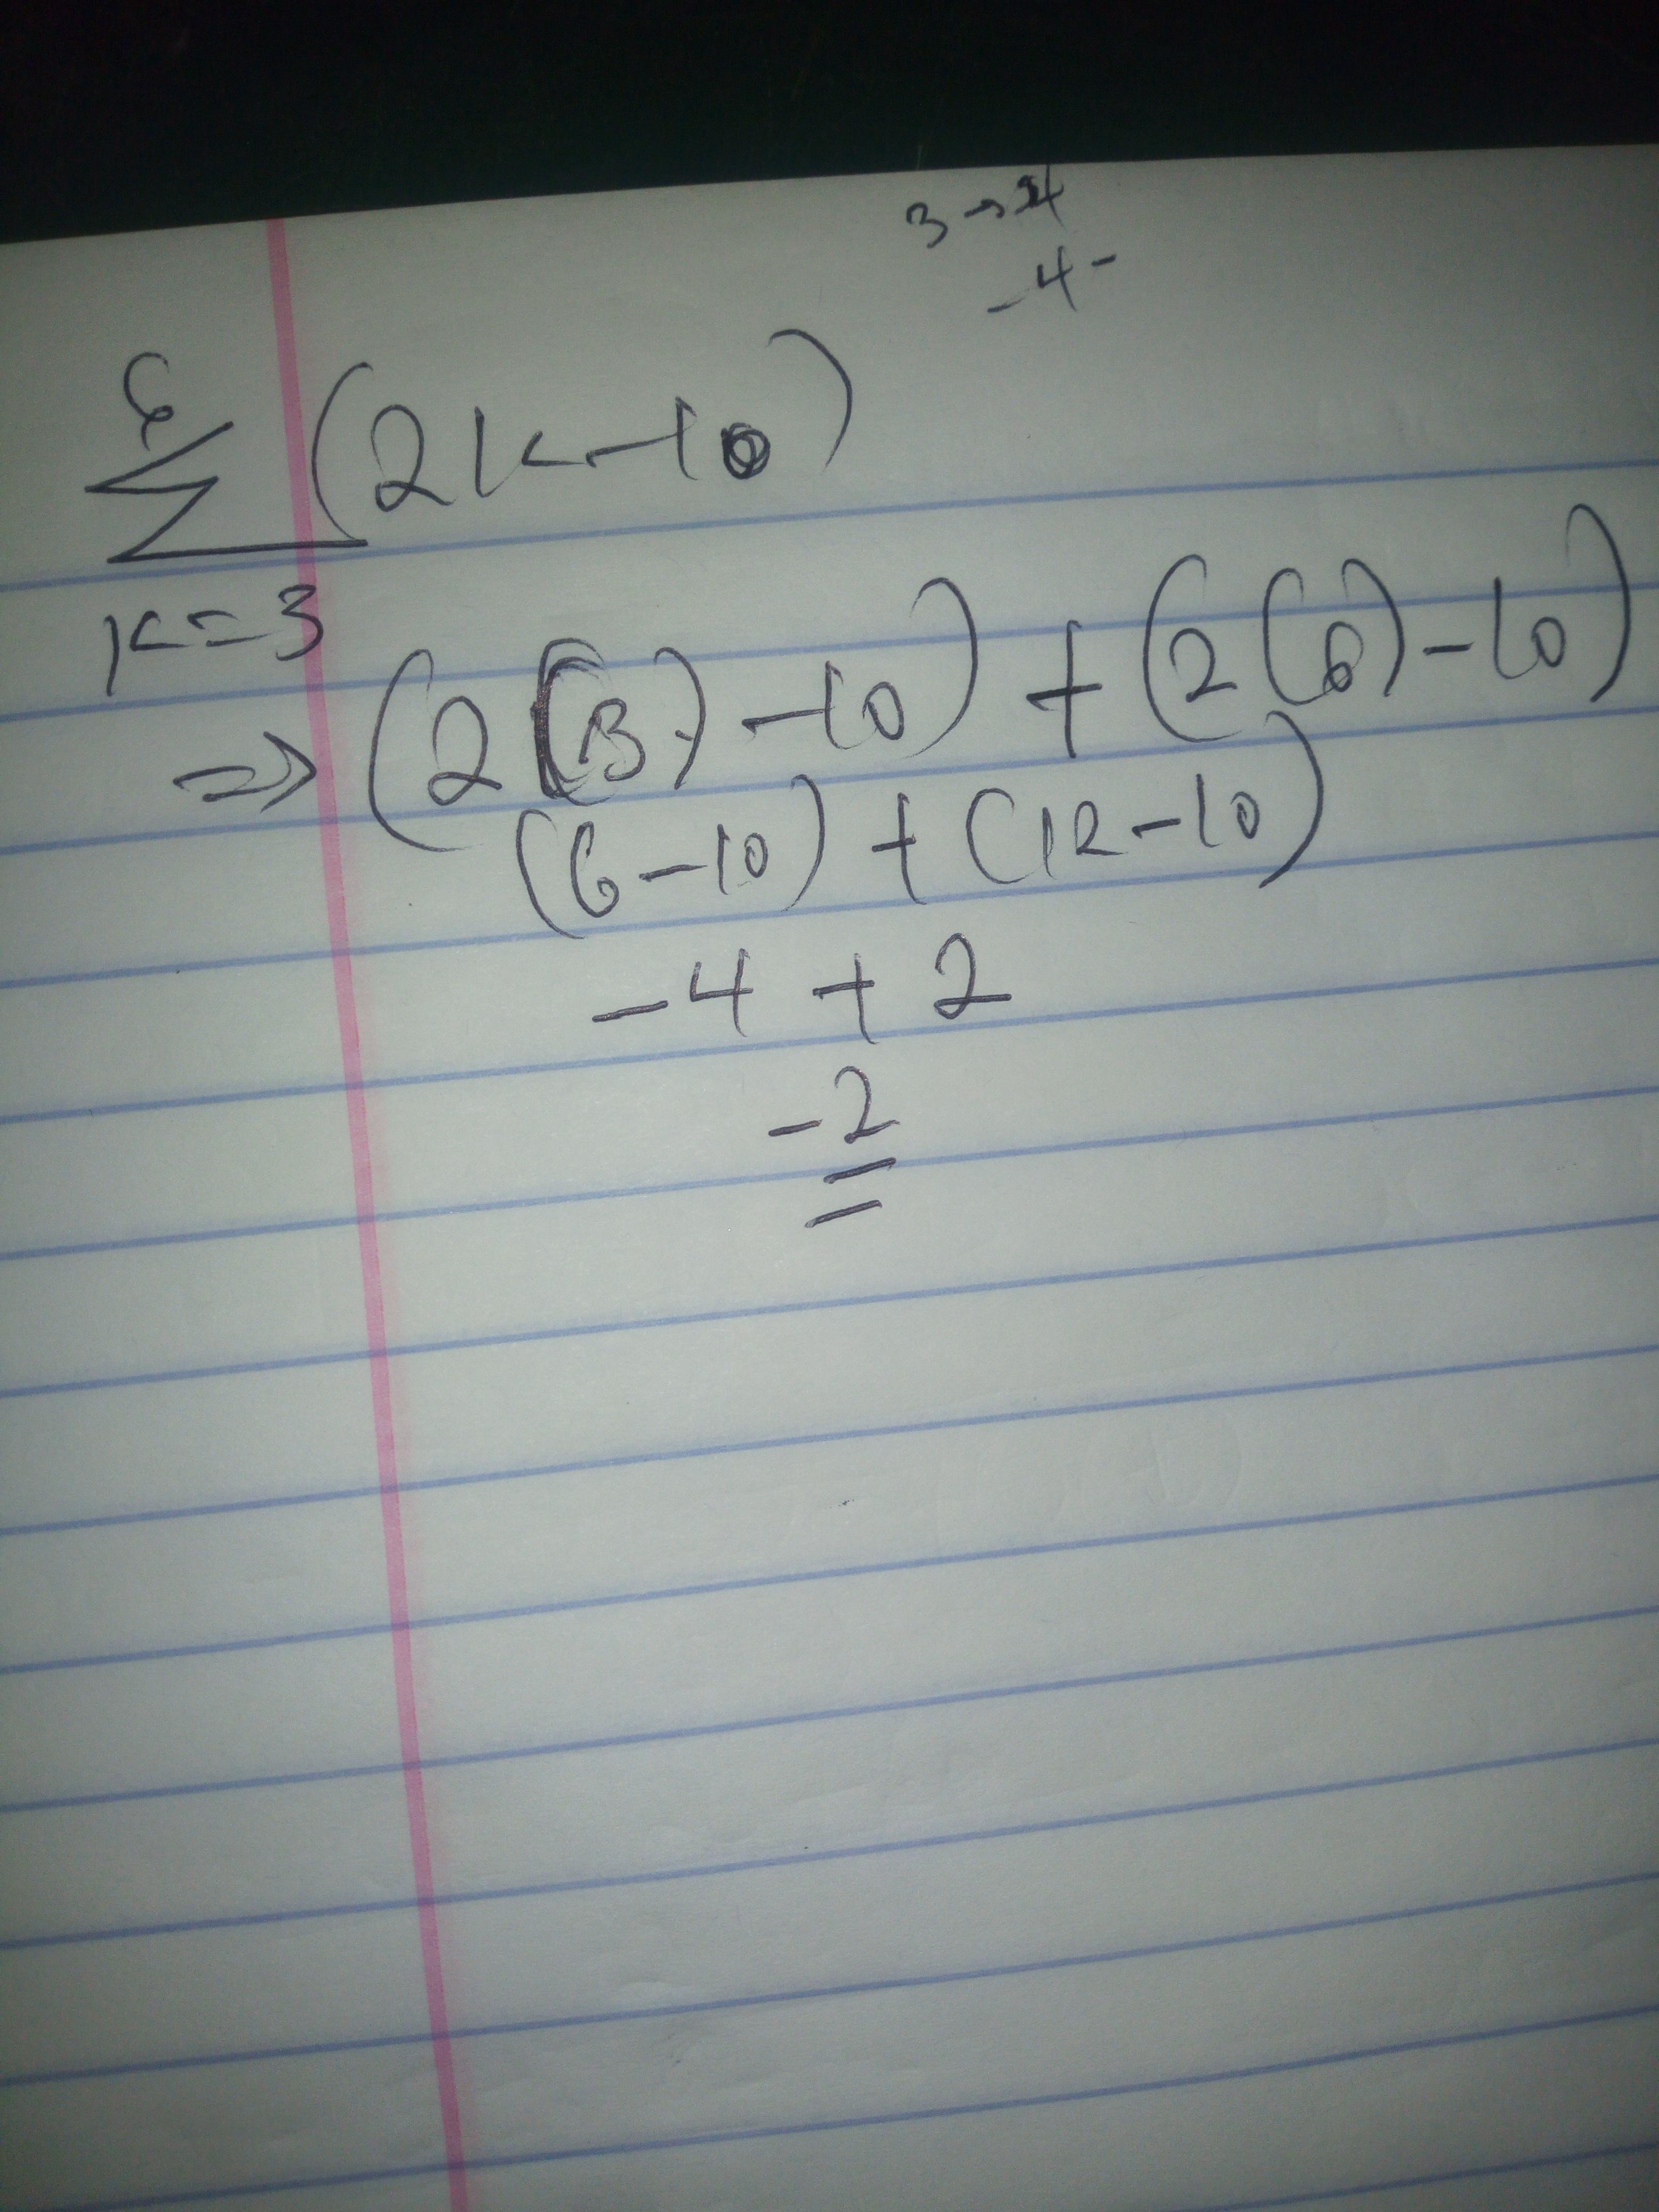 3 →
-4 -
6
Σ (2k-10)
k=3
⇒ (2(3)-10) + (2(6)-10)
(6-10) + (12-10)
-4 + 2
-2